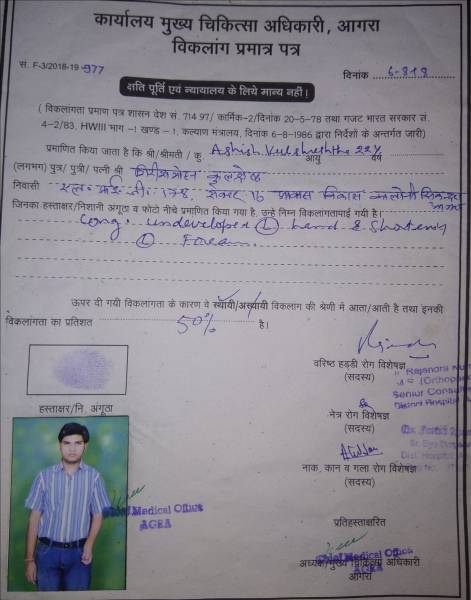 कार्यालय मुख्य चिकित्सा अधिकारी, आगरा
विकलांग प्रमात्र पत्र
सं. F-3/2018-19-977
दिनांक 6-8-18
क्षति पूर्ति एवं न्यायालय के लिये मान्य नही।
( विकलांगता प्रमाण पत्र शासन देश सं. 714.97/ कार्मिक-2/दिनांक 20-5-78 तथा गजट भारत सरकार सं.
4-2/83. HWIII भाग -1 खण्ड - 1, कल्याण मंत्रालय, दिनांक 6-8-1986 द्वारा निर्देशों के अन्तर्गत जारी)
प्रमाणित किया जाता है कि श्री/श्रीमती / कु Ashish Kulshreshtha 22½ आयु वर्ष
(लगभग) पुत्र/ पुत्री/ पत्नी श्री कुलश्रेष्ठ
निवासी एल. आई. जी. 178, सेक्टर 16 आवास विकास कालोनी सिकन्दरा आगरा
जिनका हस्ताक्षर/निशानी अंगूठा व फोटो नीचे प्रमाणित किया गया है, उन्हे निम्न विकलांगतापाई गयी है।
Cong. undeveloped (L) hand & Shortening
(L) Forearm
ऊपर दी गयी विकलांगता के कारण वे स्थायी/अस्थायी विकलांग की श्रेणी में आता/आती है तथा इनकी
विकलांगता का प्रतिशत 50% है।
वरिष्ठ हड्डी रोग विशेषज्ञ
(सदस्य)
Rajendra
(Orthopae
Senior Consul
District Hospital
हस्ताक्षर/नि. अंगूठा
नेत्र रोग विशेषज्ञ
(सदस्य)
नाक, कान व गला रोग विशेषज्ञ
(सदस्य)
Chief Medical Office
AGRA
प्रतिहस्ताक्षरित
Chief Medical Office
AGRA
अध्यक्ष/मुख्य चिकित्सा अधिकारी
आगरा